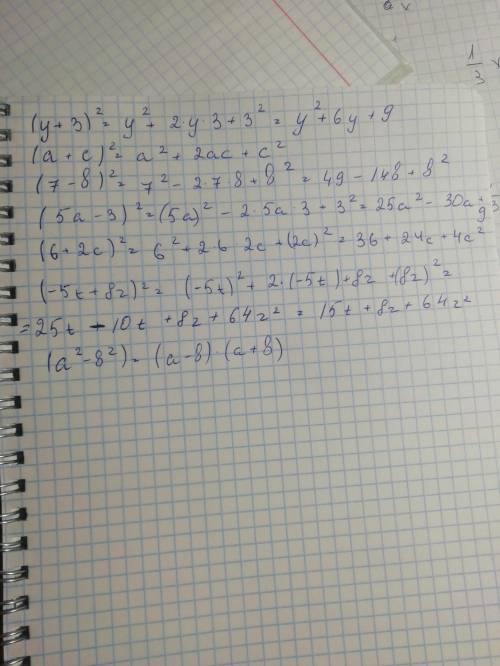 a v
1/3 v
(y+3)²= y²+ 2·y·3+3²= y²+6y+9
(a+c)²= a²+2ac+c²
(7-в)²= 7²-2·7в+в²= 49-14в+в²
(5a-3)²=(5a)²-2·5a·3+3²=25a²-30a+9
(6+2c)²= 6²+2·6·2c+(2c)²=36+24c+4c²
(-5t+8z)²= (-5t)²+2·(-5t)+8z+(8z)²=
=25t-10t+8z+64z²= 15t+8z+64z²
(a²-в²)=(a-в)·(a+в)